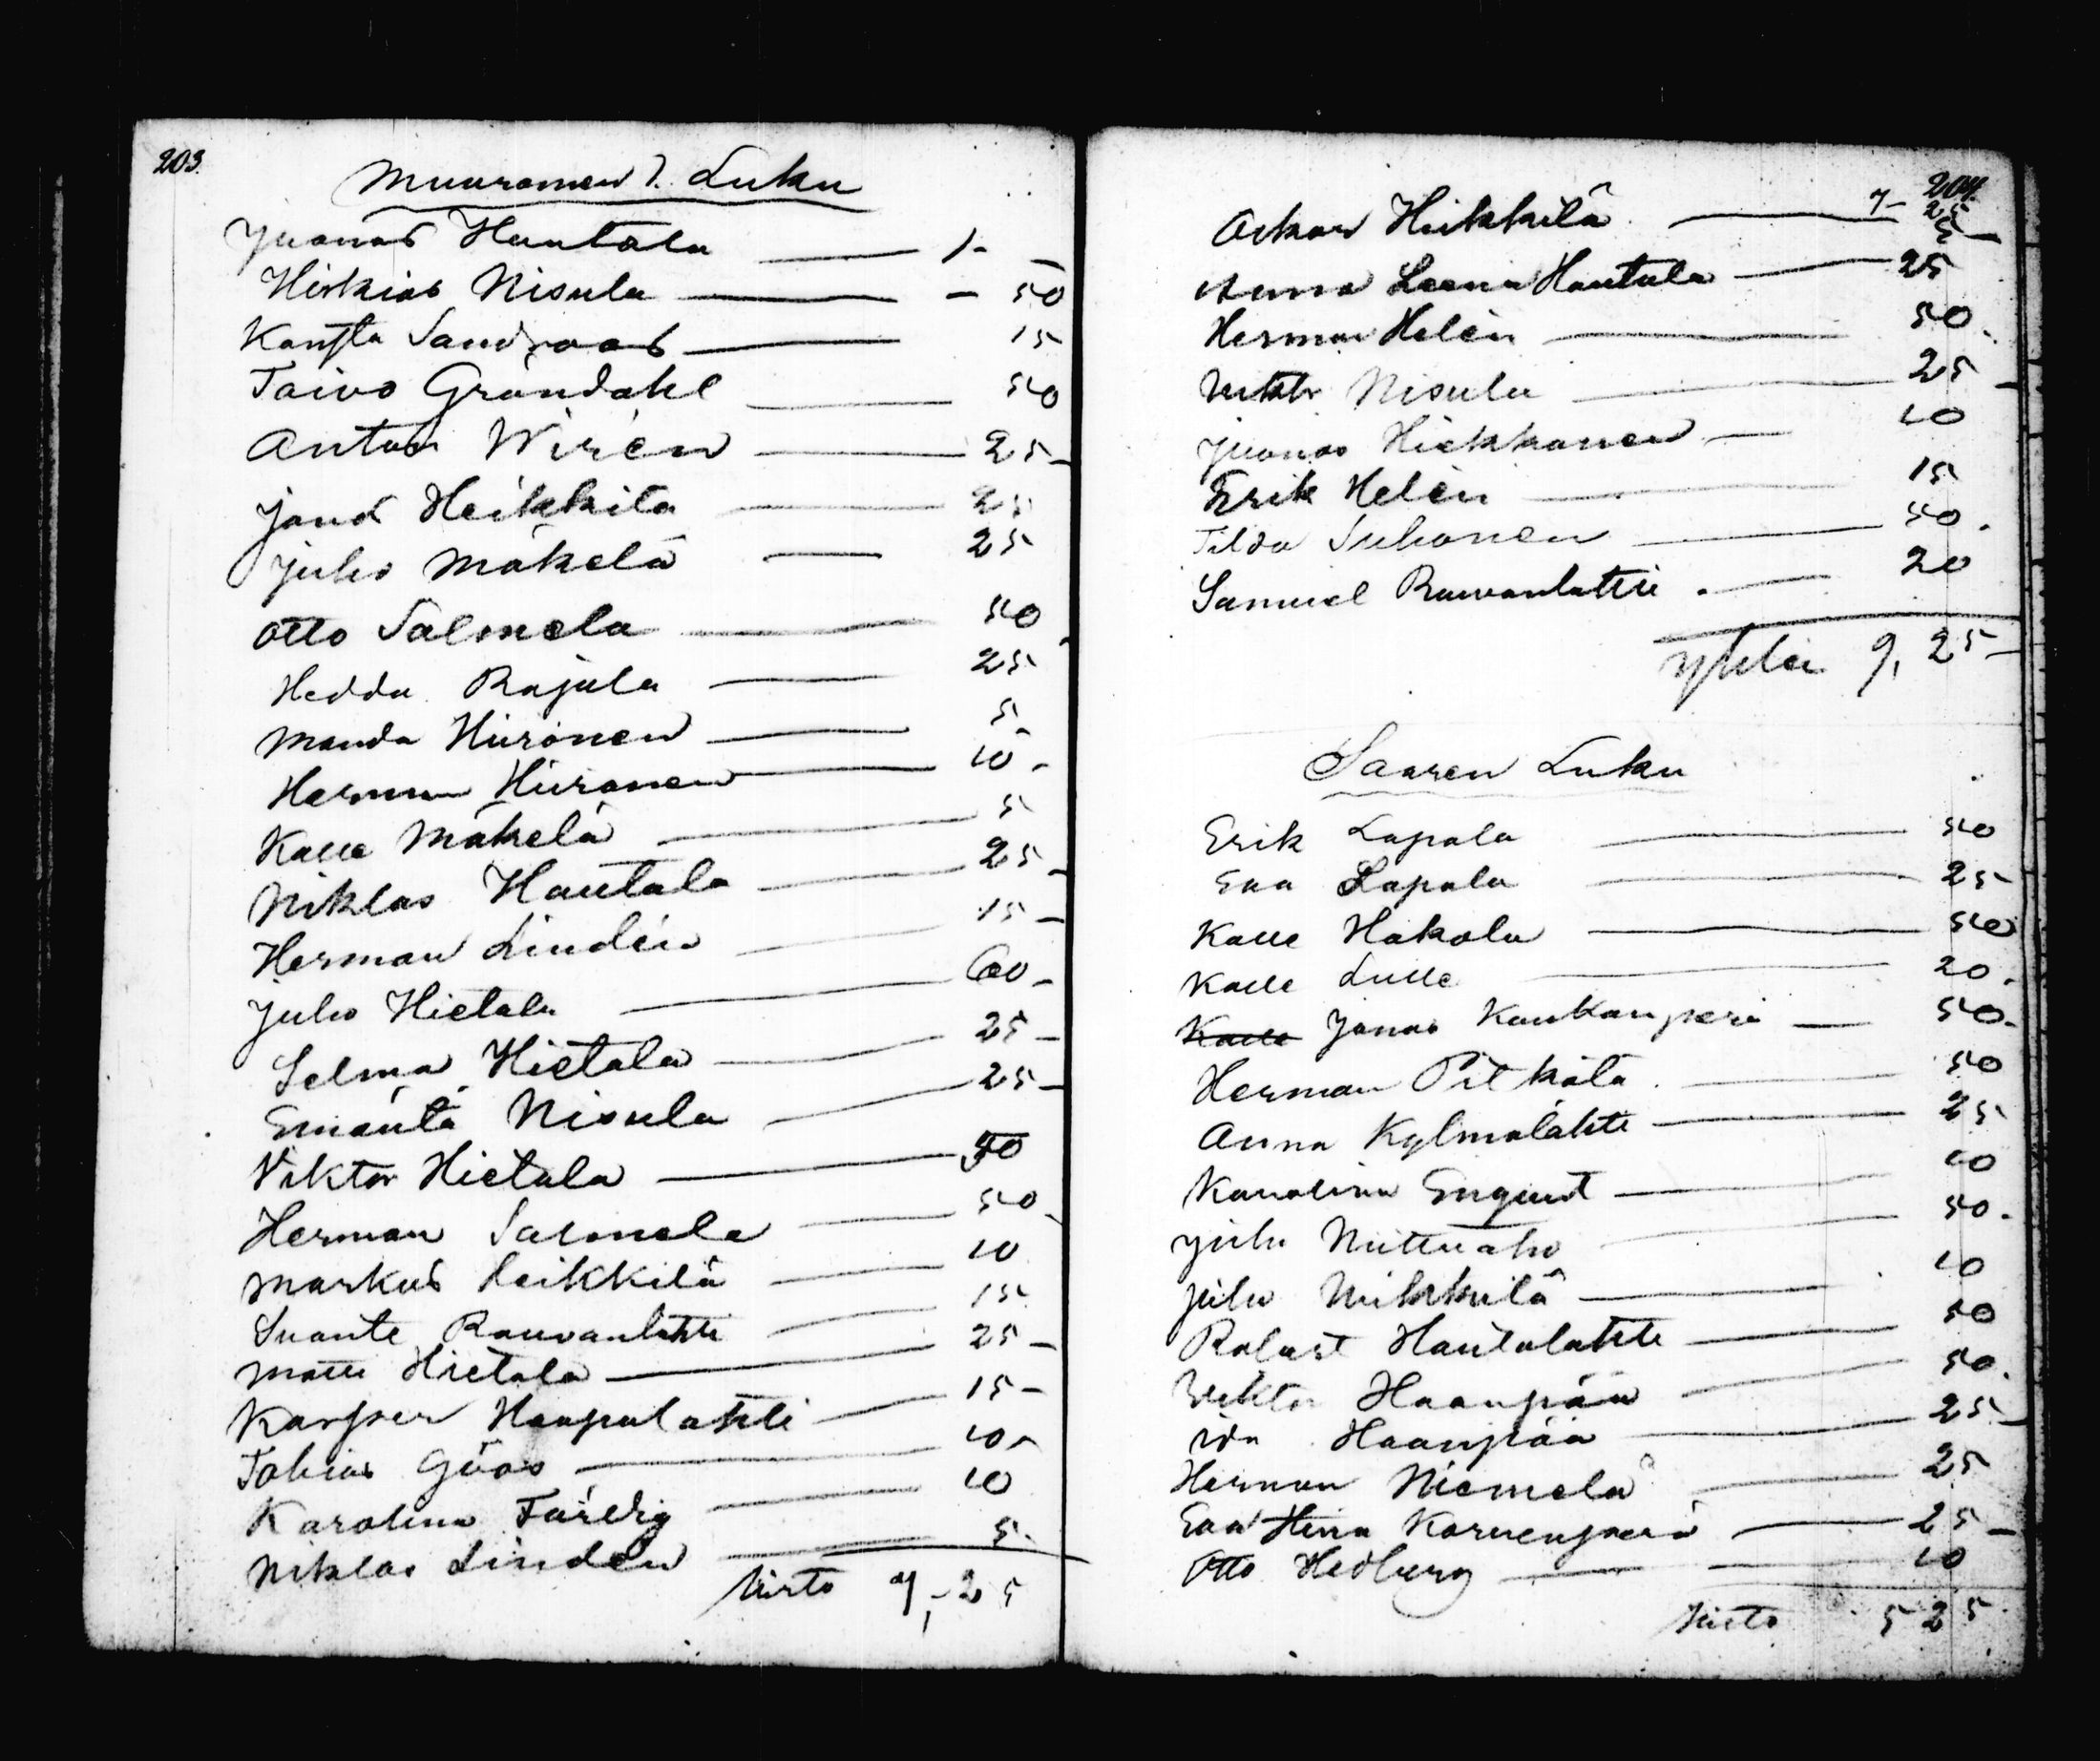 203.
Muuramen 7. Luku
Juonas Hautala 1 - -
Hiskias Nisula - 50
Konsta Sandroos 15
Toivo Gröndahl 50
Anton Wirén 25 -
Jonas Heikkilä 25
Juho Mäkelä 25
Otto Salmela 50
Hedda Rajala 25
Manda Hiironen 5 -
Herman Hiironen 10 -
Kalle Mäkelä 5
Niklas Hautala 25 -
Herman Lindén 15 -
Juho Hietala 60 -
Selma Hietala 25 -
Emäntä Nisula 25 -
Viktor Hietala 50
Herman Salmela 50 -
Markus Heikkilä 10
Svante Rauvanlahti 15
Matti Hietala 25 -
Kasper Haapalahti 15 -
Tobias Göös 10 -
Karolina Färdig 10
Niklas Lindén 5 -
Siirto 7,- 25
204.
7 - 25
Oskar Heikkilä 5 -
Anna Leena Hautala 25
Herman Helén 50.
Viktor Nisula 25 -
Juonas Hiekkanen 10
Erik Helén 15
Tilda Suhonen 50.
Samuel Rauvanlahti 20
Yhten 9, 25 -
Saaren Luku
Erik Lapala 50
Eva Lapala 25 -
Kalle Hakola 50
Kalle Lulle 20.
Kalle Jonas Kaukanperi 50.
Herman Pitkälä 50
Anna Kylmälahti 25
Karolina Enqvist 10
Juho Niittuaho 50.
Juho Mikkilä 10
Robert Hautalahti 50
Viktor Haanpää 50.
Ida Haanpää 25 -
Herman Niemelä 25
Eva Stina Korvenperä 25 -
Otto Hedberg 10
Siirto 5 25